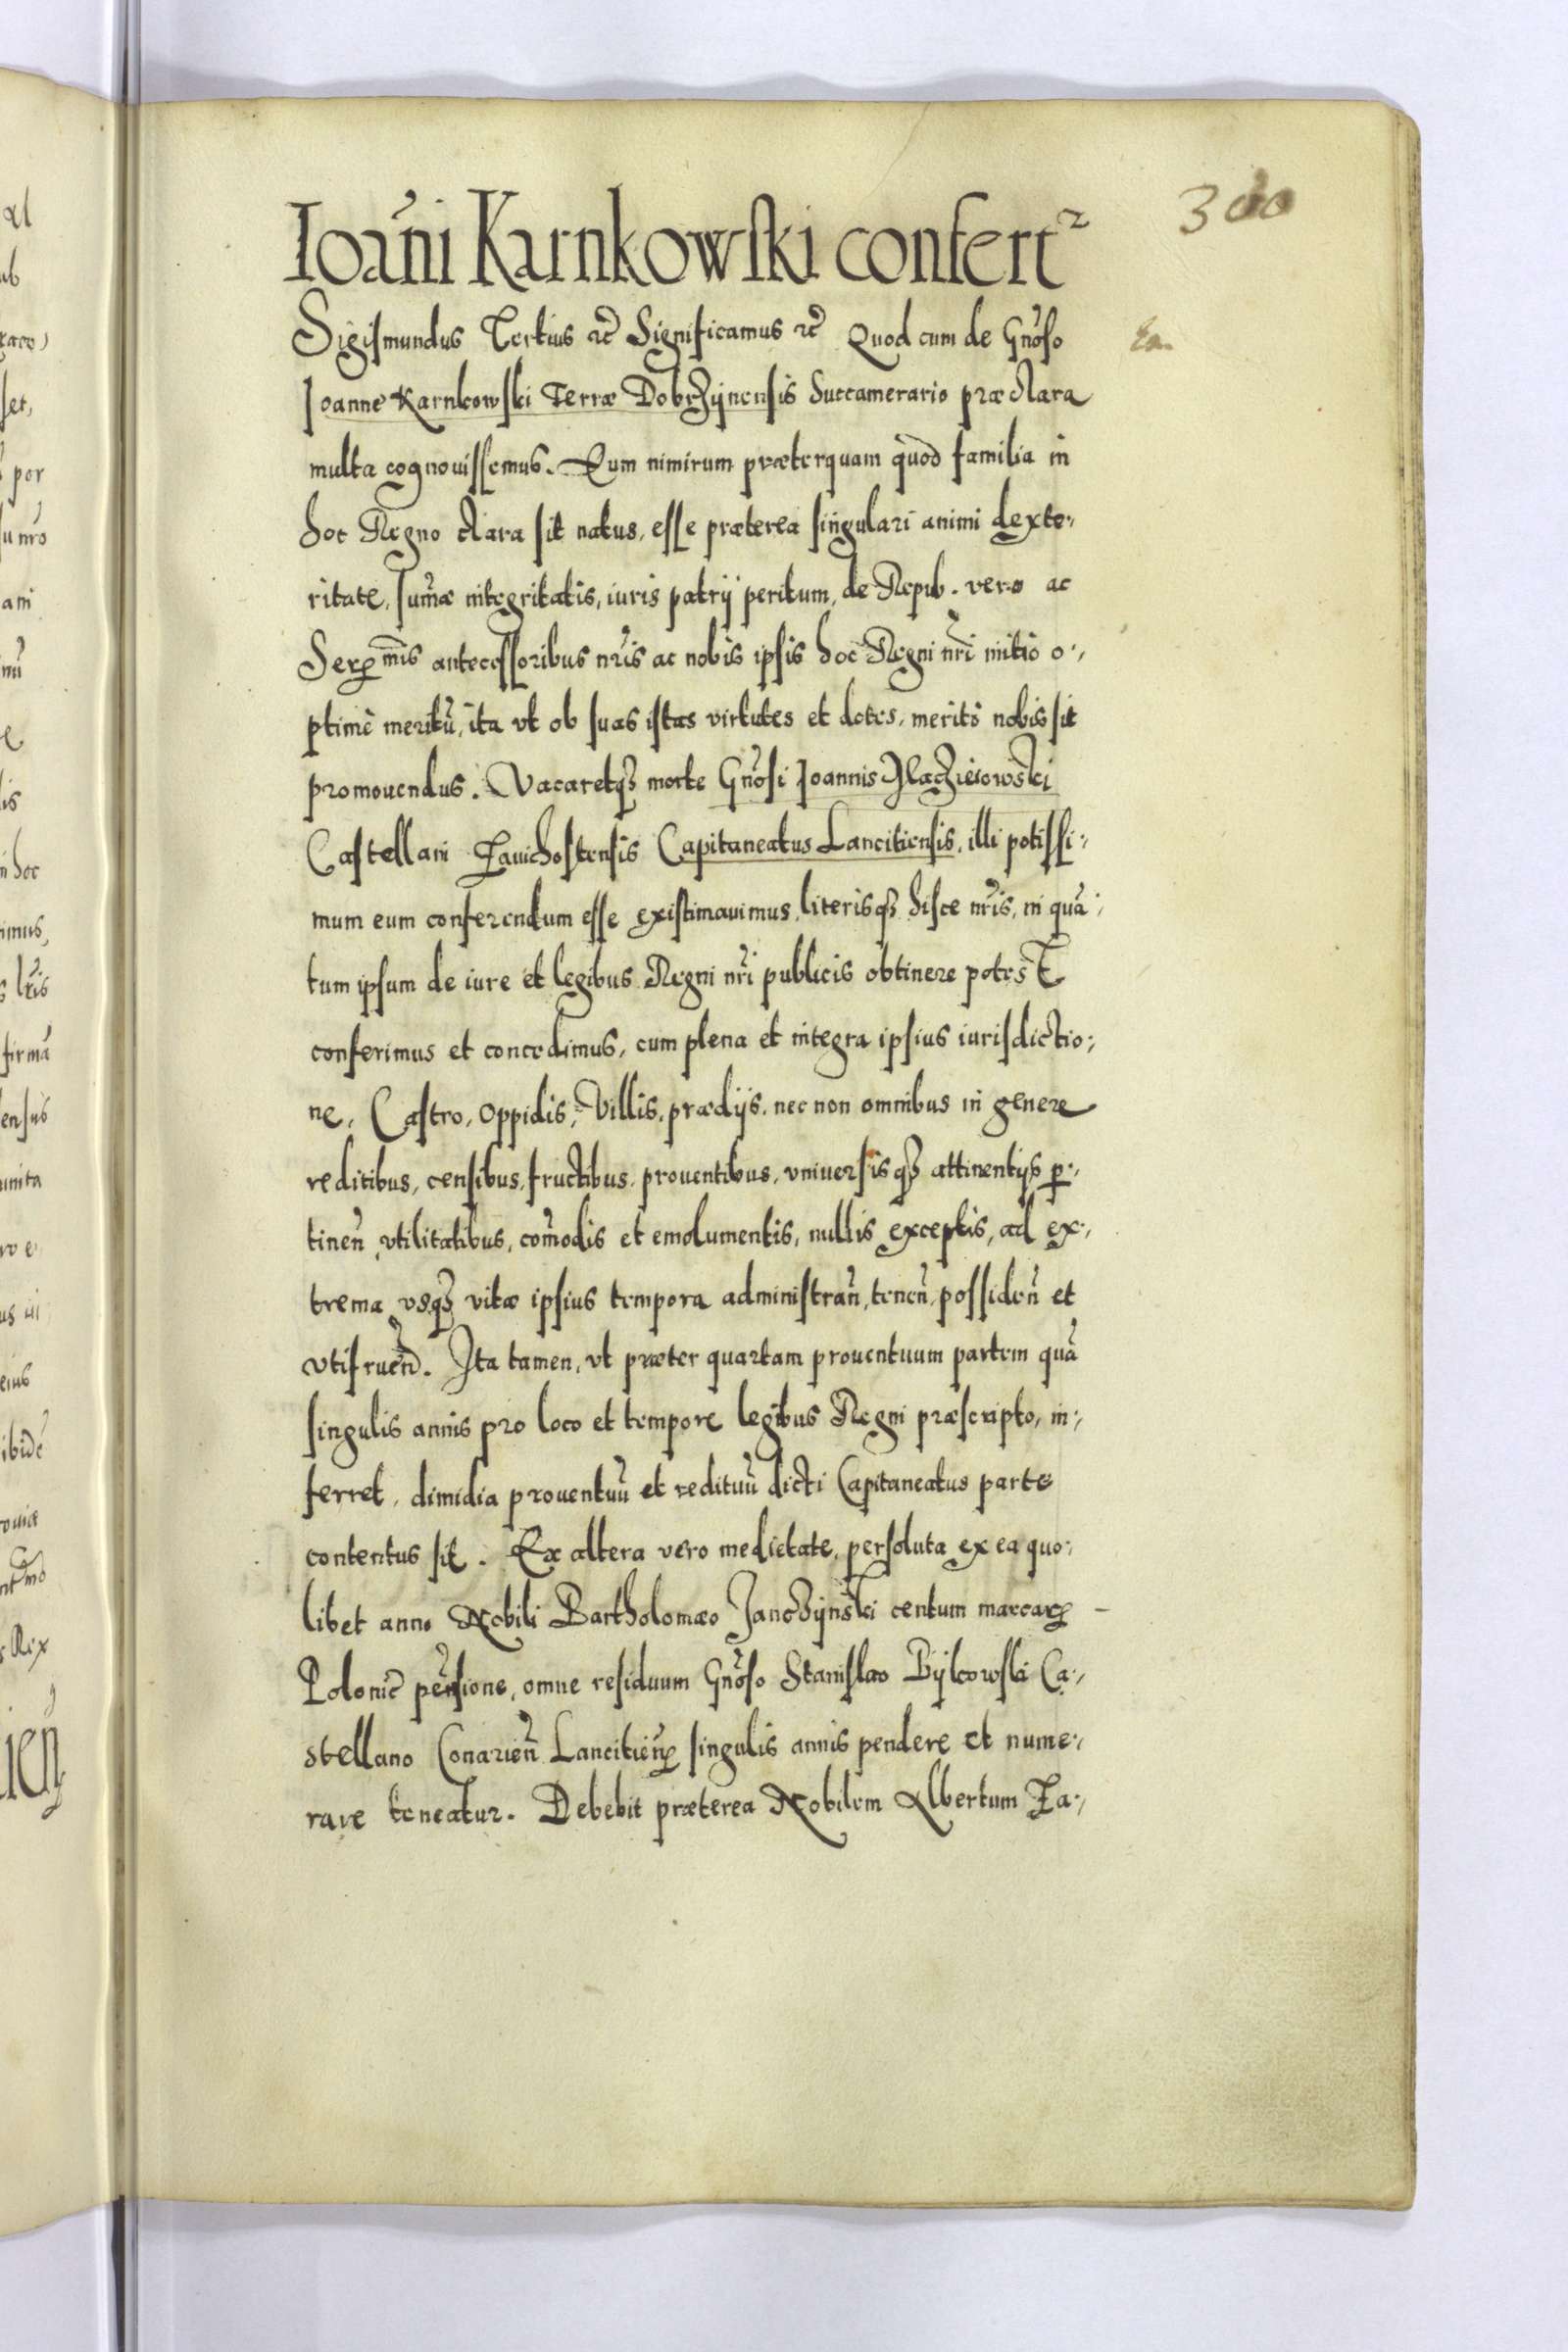 300
Ioãni Karnkowski confert²
Sigismundus Tertius etc̃ Significamus etc̃ Quod cum de Gnõso
Joanne Karnkowski Terræ Dobrzÿnensis Succamerario præclara
multa cognouissemus. Eum nimirum præterquam quòd familia in
hoc Regno clara sit natus, esse præterea singulari animi dexte:,
ritate, sum̃æ integritatis, iuris patrij peritum, de Repub. vero ac
Seren mis antecessoribus nr̃is ac nobis ipsis hoc Regni nr̃i initio o:,
ptimè meritũ, ita vt ob suas istas virtutes et dotes, meritò nobis sit
promouendus. Vacaretq3 morte Gnõsi Joannis
Castellani Zauichostensis Capitaneatus Lancitiensis, illi potissi:,
mum eum conferendum esse existimauimus, literisq3 hisce nr̃is, in quã:,
tum ipsum de iure et legibus Regni nr̃i publicis obtinere potest
conferimus et concedimus, cum plena et integra ipsius iurisdictio:,
ne, Castro, Oppidis, Villis, prædijs, nec non omnibus in genere
reditibus, censibus, fructibus, prouentibus, vniuersisq3 attinentijs per:,
tineñ vtilitatibus, com̃odis et emolumentis, nullis exceptis, ad ex:,
trema vsq3 vitæ ipsius tempora administrañ, teneñ, possideñ et
vtifrueñd. Ita tamen, vt præter quartam prouentuum partem quã
singulis annis pro loco et tempore legibus Regni præscripto, in:,
ferret, dimidia prouentuũ et redituũ dicti Capitaneatus parte
contentus sit. Ex altera vero medietate, persoluta ex ea quo:,
libet anno Nobili Bartholomæo Janczÿnski centum marcarum
Polonic̃ pensione, omne residuum Gnõso Stanislao Bÿkowski Ca:,
stellano Conarieñ Lancitieñ singulis annis pendere et nume:,
rare teneatur. Debebit præterea Nobilem Albertum Za:,